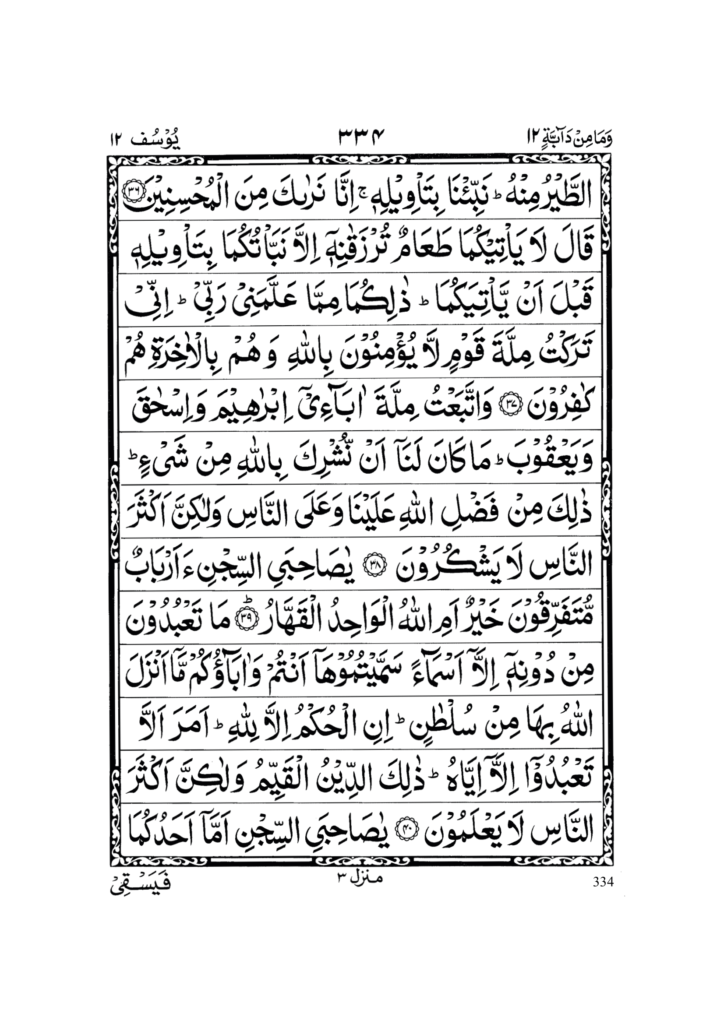 وَمَا مِنْ دَآبَّةٍ ١٢ ٣٣۴ يُوْسُف ١٢
الطَّيْرُ مِنْهُ ؕ نَبِّئْنَا بِتَاْوِيْلِهٖ ۚ اِنَّا نَرٰىكَ مِنَ الْمُحْسِنِيْنَ ﴿٣٦﴾
قَالَ لَا يَاْتِيْكُمَا طَعَامٌ تُرْزَقٰنِهٖٓ اِلَّا نَبَّاْتُكُمَا بِتَاْوِيْلِهٖ
قَبْلَ اَنْ يَّاْتِيَكُمَا ؕ ذٰلِكُمَا مِمَّا عَلَّمَنِيْ رَبِّيْ ؕ اِنِّيْ
تَرَكْتُ مِلَّةَ قَوْمٍ لَّا يُؤْمِنُوْنَ بِاللّٰهِ وَ هُمْ بِالْاٰخِرَةِ هُمْ
كٰفِرُوْنَ ﴿٣٧﴾ وَاتَّبَعْتُ مِلَّةَ اٰبَآءِيْٓ اِبْرٰهِيْمَ وَاِسْحٰقَ
وَيَعْقُوْبَ ؕ مَا كَانَ لَنَآ اَنْ نُّشْرِكَ بِاللّٰهِ مِنْ شَيْءٍ ؕ
ذٰلِكَ مِنْ فَضْلِ اللّٰهِ عَلَيْنَا وَعَلَى النَّاسِ وَلٰكِنَّ اَكْثَرَ
النَّاسِ لَا يَشْكُرُوْنَ ﴿٣٨﴾ يٰصَاحِبَيِ السِّجْنِ ءَاَرْبَابٌ
مُّتَفَرِّقُوْنَ خَيْرٌ اَمِ اللّٰهُ الْوَاحِدُ الْقَهَّارُ ﴿٣٩﴾ؕ مَا تَعْبُدُوْنَ
مِنْ دُوْنِهٖٓ اِلَّآ اَسْمَآءً سَمَّيْتُمُوْهَآ اَنْتُمْ وَاٰبَآؤُكُمْ مَّآ اَنْزَلَ
اللّٰهُ بِهَا مِنْ سُلْطٰنٍ ؕ اِنِ الْحُكْمُ اِلَّا لِلّٰهِ ؕ اَمَرَ اَلَّا
تَعْبُدُوْٓا اِلَّآ اِيَّاهُ ؕ ذٰلِكَ الدِّيْنُ الْقَيِّمُ وَلٰكِنَّ اَكْثَرَ
النَّاسِ لَا يَعْلَمُوْنَ ﴿٤٠﴾ يٰصَاحِبَيِ السِّجْنِ اَمَّآ اَحَدُكُمَا
334 منزل ٣ فَيَسْقِيْ